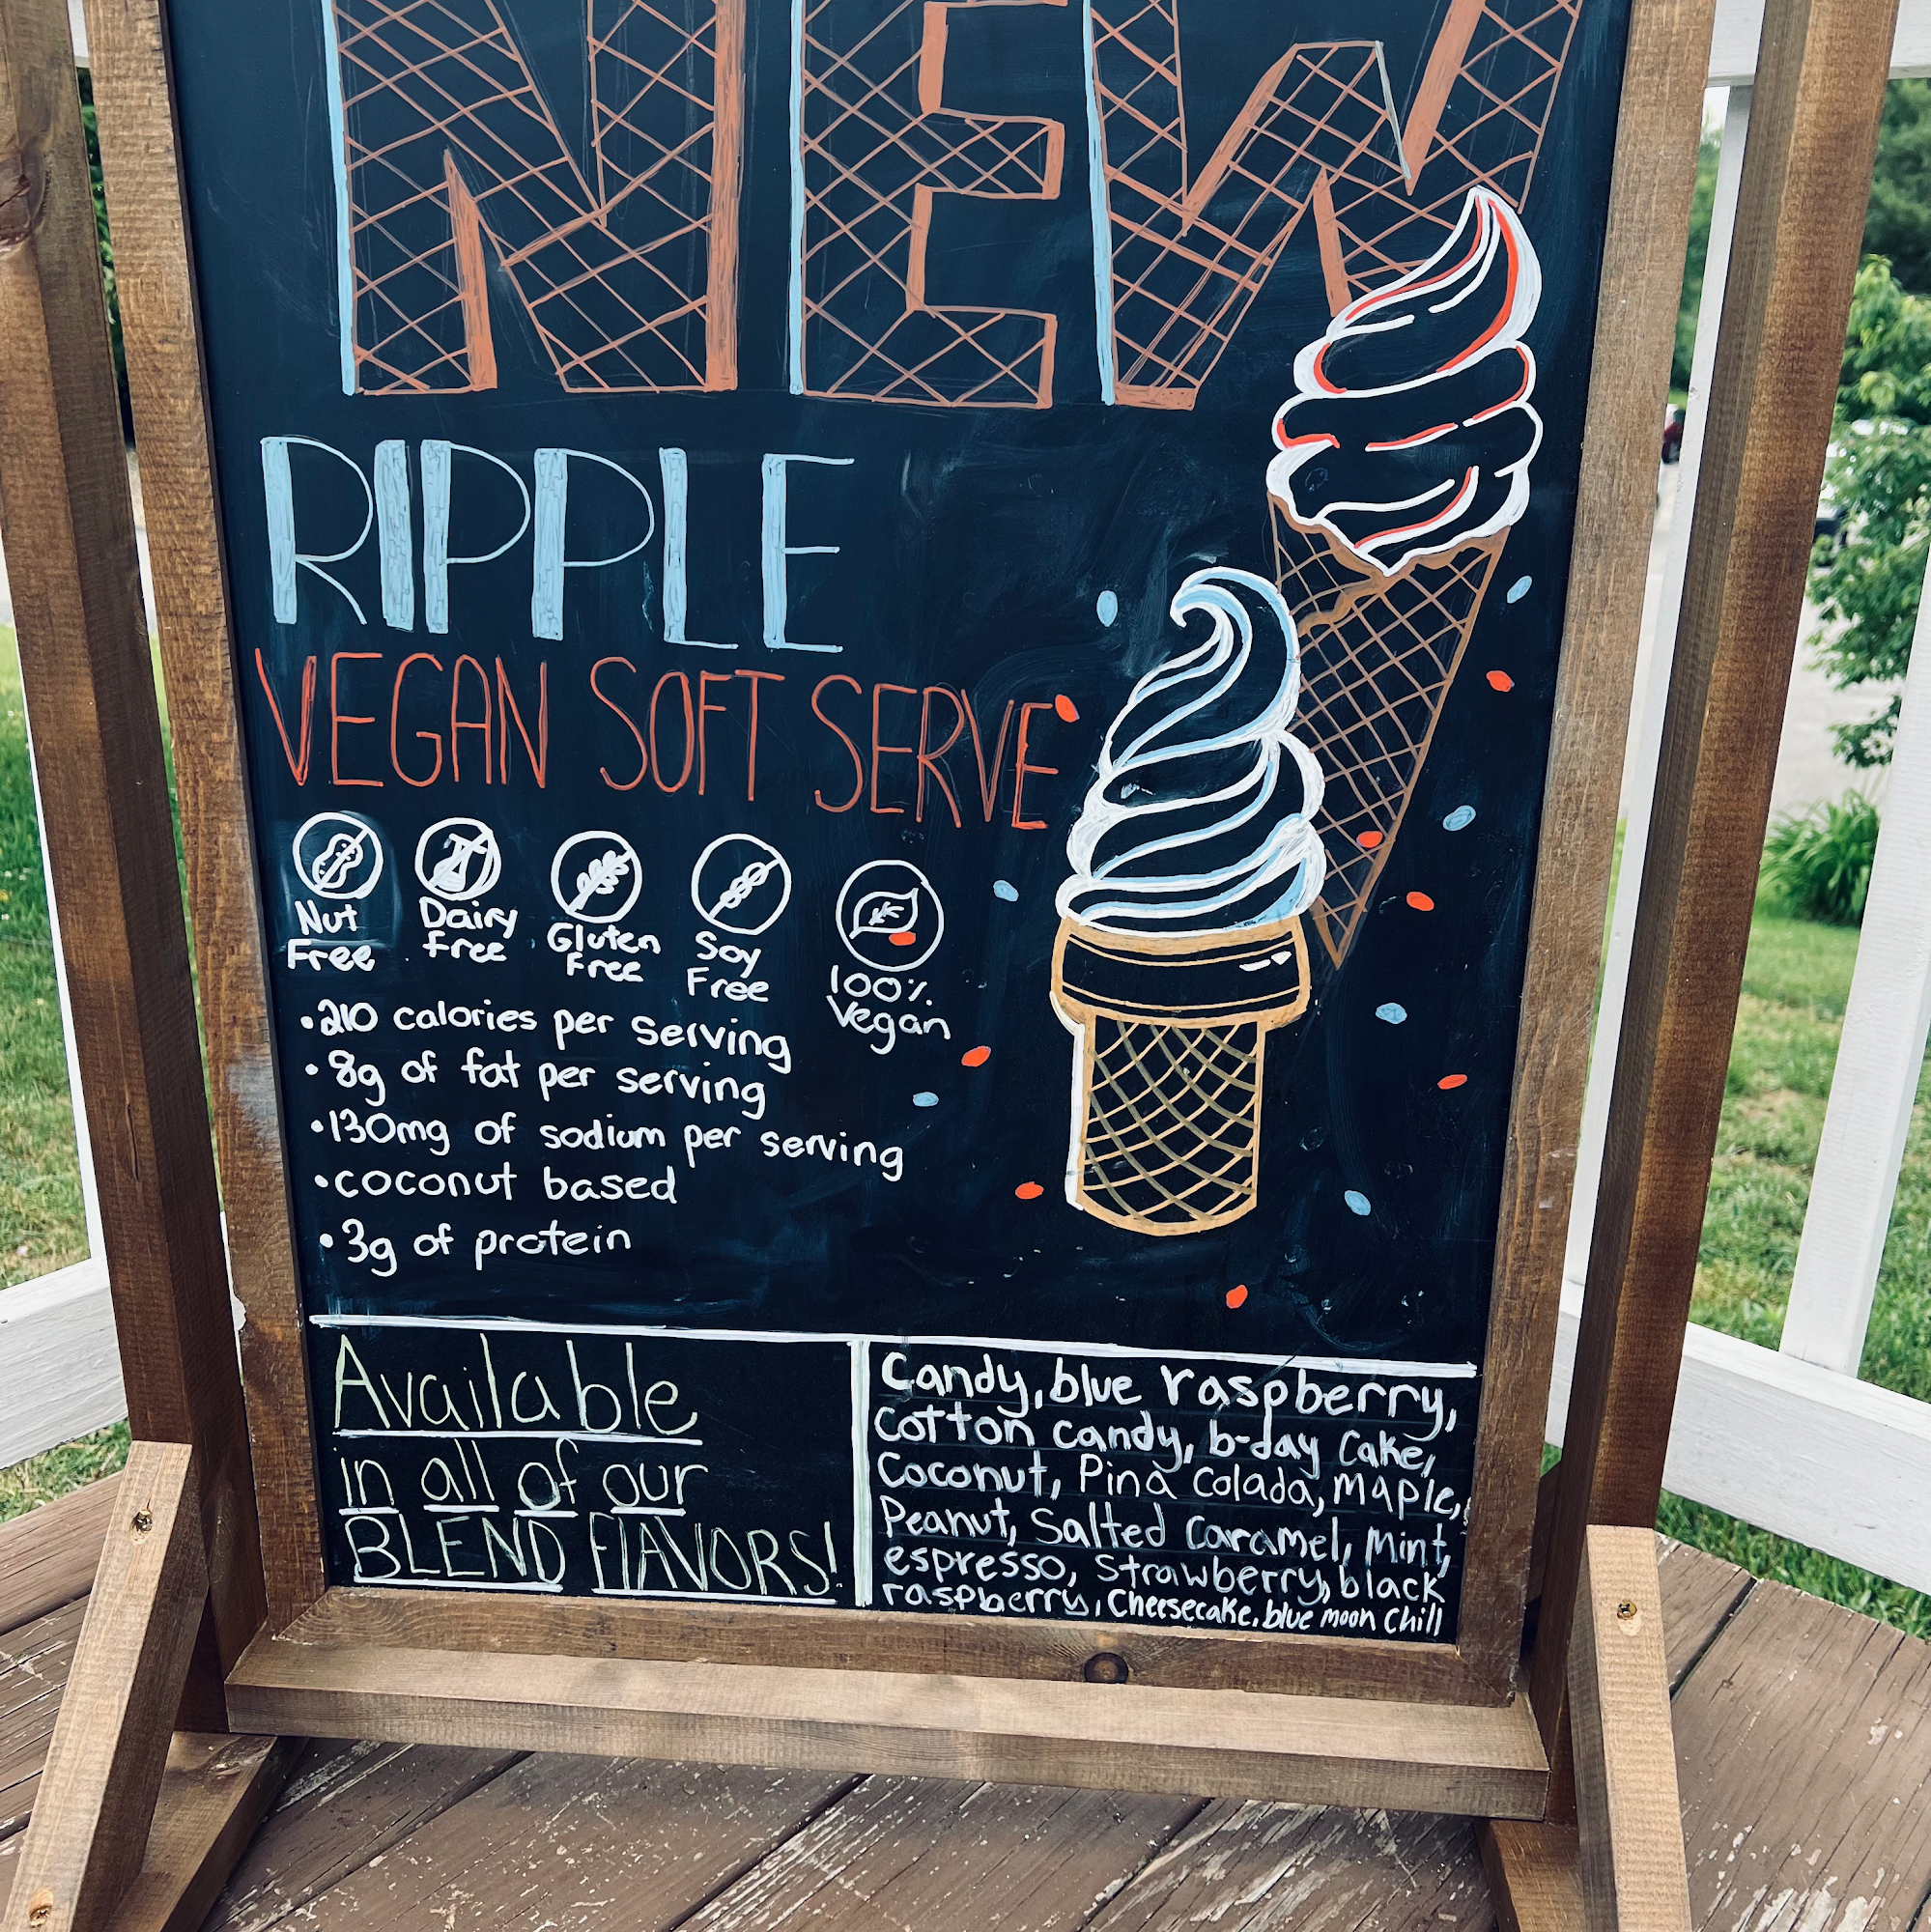 NEW
RIPPLE
VEGAN SOFT SERVE
Nut Free
Dairy free
Gluten Free
Soy Free
100% Vegan
•210 calories per serving
•8g of fat per serving
•130mg of sodium per serving
•coconut based
•3g of protein
Available
in all of our
BLEND FLAVORS!
Candy, blue raspberry,
cotton candy, b-day cake,
Coconut, Pina colada, maple,
Peanut, Salted Caramel, Mint,
espresso, Strawberry, black
raspberry, Cheesecake, blue moon Chill